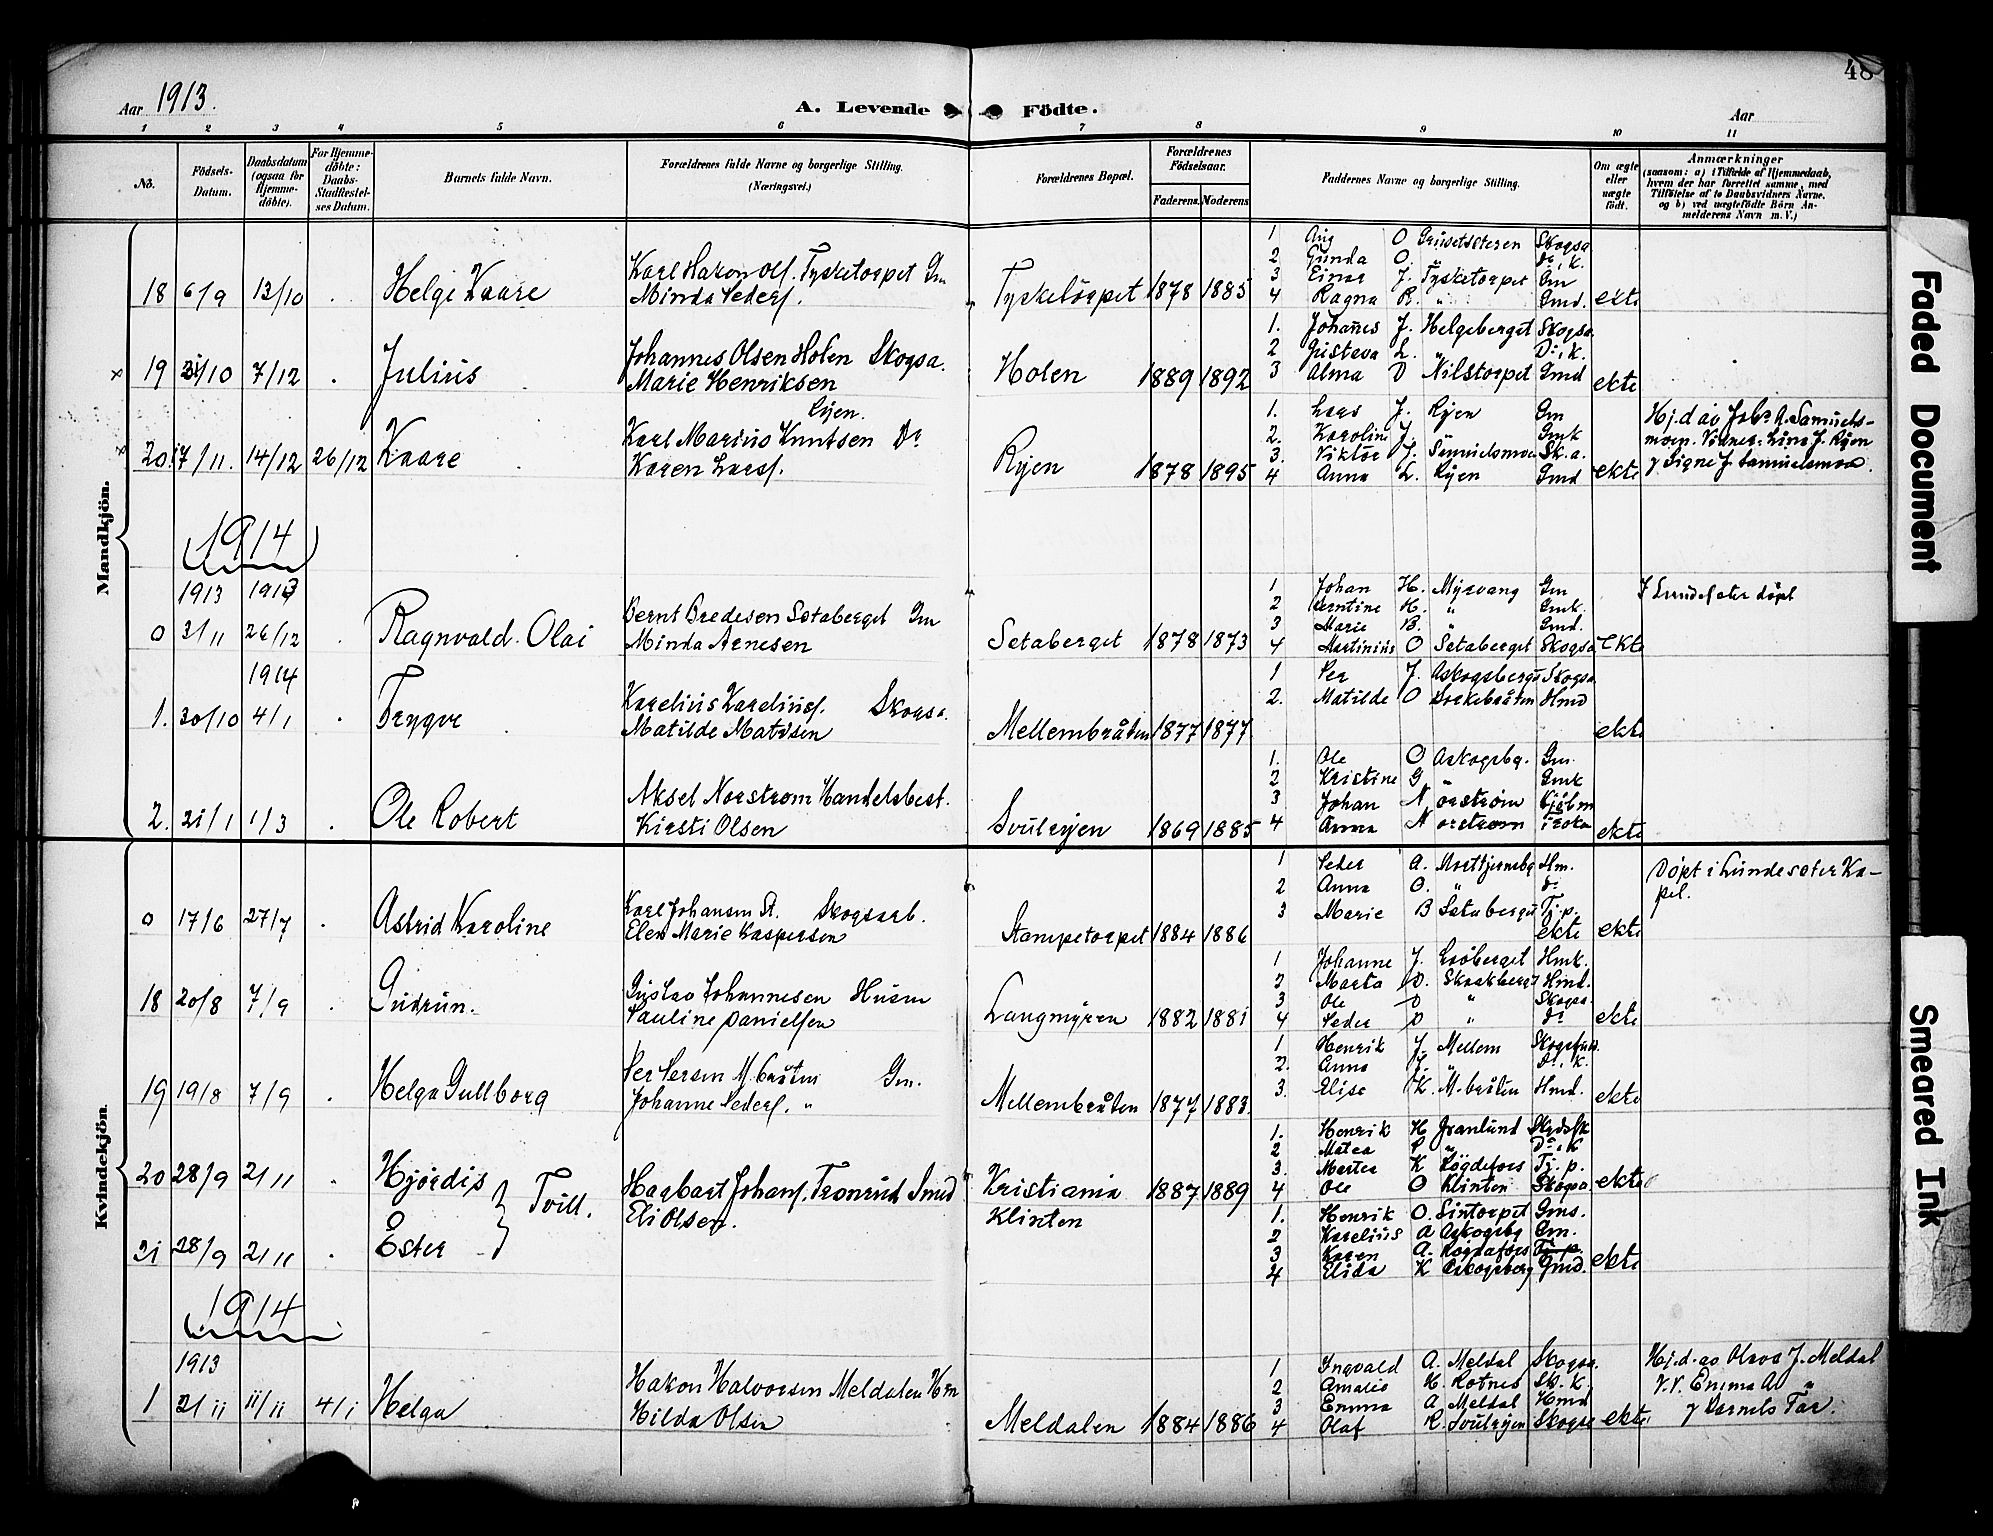 48
Aar 1913.
A. Levende Födte.
Aar
1 2 3 4 5 6 7 8 9 10 11
No.
Födsels-Datum.
Daabsdatum (ogsaa for Hjemme-döbte).
For Hjemme-döbte: Daabs-Stadfæstel-ses Datum.
Barnets fulde Navn.
Forældrenes fulde Navne og borgerlige Stilling. (Næringsvei.)
Forældrenes Bopæl.
Forældrenes Födselsaar.
Faderens. Moderens
Faddernes Navne og borgerlige Stilling.
Om ægte eller uægte födt.
Anmærkninger
(saasom: a) i Tilfælde af Hjemmedaab, hvem der har forrettet samme, med Tilföielse af to Daabsvidners Navne, og b) ved uægtefödte Börn An-melderens Navn m. V.)
Mandkjön.
18 6/9 13/10 Helge Kaare
Karl Hakon Ols. Tysketorpet Gm
Minda Peders.
Tysketorpet 1878 1885
1 Aug O Grusetsteren Skogsa
2 Gunda O. " Do, k.
3 Einar J. Tysketorpet Gm
4 Ragna R. " Gmd. ekte
19 31/10 7/12 Julius
Johannes Olsen Holen Skogsa.
Marie Henriksen
Holen 1889 1892
1. Johanes J. Helgeberget Skogsa.
2 Gustava L. " Do, k.
3 Alma O Nilstorpet Gmd ekte
20. 17/11. 14/12 26/12 Kaare
Ryen.
Karl Marius Knutsen Do
Karen Lars.
Ryen 1878 1895
1. Lars J. Ryen Gm
2. Karoline J. " Gmk
3. Viktor J. Samuelsmoen Sk.a.
4 Anna L. Ryen Gmd ekte
Hj.d av Johs A. Samuels-
moen. Vidner: Lina J. Ryen
& Signe J. Samuelsmoe.
1914
1913 1913
0 3/11 26/12 Ragnvald Olai
Bernt Bredesen Sætaberget Gm
Minda Arnesen
Sætaberget 1878 1873
1 Johan H. Myrvang Gm
2 Berntine H. " Gmk.
3 Marie B. " Gmd.
4 Martinius O Sætaberget Skogsa Ekte
I Lundesæter döpt
1914
1. 30/10 4/1 Trygve
Karelius Karelius. Skogsa.
Matilde Matisen
Mellembråten 1877 1877
1 Per J. Askogsberget Skogsa
2. Matilde O Brekebråten Hmd
ekte
2. 21/1 1/3 Ole Robert
Aksel Norstrøm Handelsbest.
Kirsti Olsen
Svulryen 1869 1885
1. Ole O Askogsbg. Gm.
2 Kristine G " Gmk
3 Johan Norstrøm Kjöbm
4 Anna Norstrøm Frøken ekte
Kvindekjön.
0 17/6 27/7 Astrid Karoline
Karl Johansen St. Skogsarb.
Elen Marie Kaspersen
Stampetorpet 1884 1886
1 Peder A. Morttjernsbg Hm.
2 Anna O. " do
3 Marie B Sætaberget Tj.p.
ekte ekte
Döpt i Lundesæter Ka-
pel.
18 20/8 7/9 Gudrun.
Gustav Johannesen Husm
Pauline Danielsen
Langmyren 1882 1881
1 Johanne J. Lröberget Hmk.
2 Marta O. Skrakberget Hmd.
3 Ole O " Skogsa.
4 Peder O " do ekte
19 19/8 7/9 Helga Gullborg
Per Persen M.bråten Gm.
Johanne Peders. "
Mellembråten 1877 1883.
1 Henrik J. Mellem Skogsfuld.
2. Anna J. " Do, K.
3. Elise K. M.bråten Hmd. ekte
20 28/9 2/11 Hjördis
Tvill.
Harbart Johans. Tronrud Smed
Eli Olsen.
Kristiania 1887 1889
Klinten
1. Henrik H Granlund Skydssk
2 Matea P " Do, K
3. Martea K Rögdefors Tj. p.
4 Ole O Klinten Skogsa. ekte
21 28/9 2/11 Ester
1. Henrik O. Sintorpet Gms.
2 Karelius A Askogsbg Gm.
3 Karen A. Rögdafors Tj.p.
4 Elida K Askogsberg Gmd. ekte
1914
1913
1 2/11 11/11 4/1 Helga
Hakon Halvorsen Meldalen Hm
Hilda Olsen
Meldalen 1884 1886
1 Ingvald A. Meldal Skogsa.
2 Amalie H. Rotnes Sk. K.
3 Emma A Meldal Hmd
4 Olaf R. Svulryen Skogsa ekte
Hj.d. av Olava J. Meldal
V.V. Emma A
& Barnets Far.
Faded Document
Smeared Ink